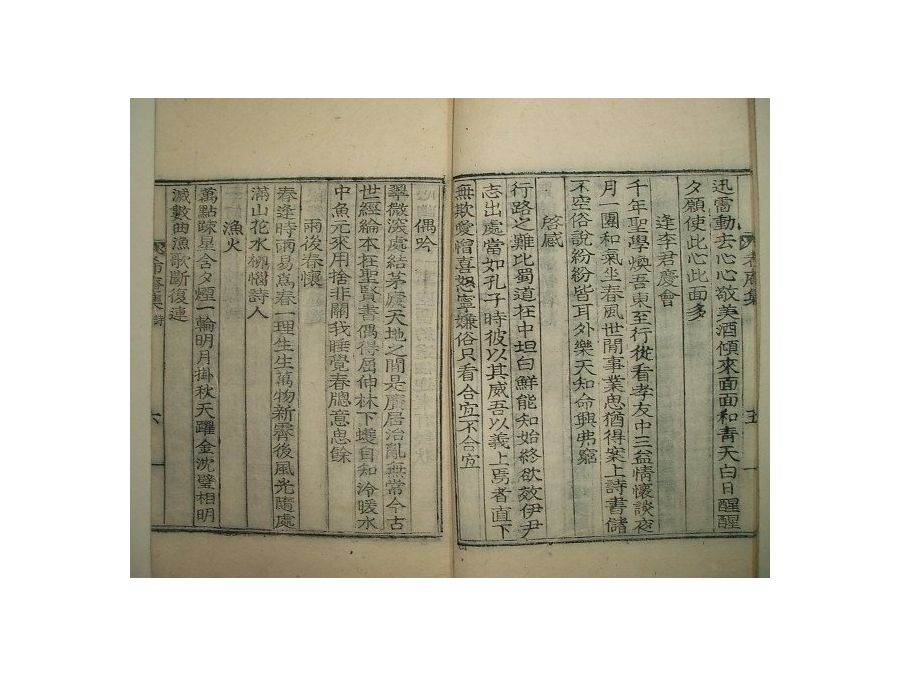 迅雷動去心心敬美酒傾來面面和青天白日醒醒
夕願使此心此面多
逢李君慶會
千年聖學煥吾東至行從看孝友中三益情懷談夜
月一團和氣坐春風世間事業思猶得案上詩書儲
不空俗說紛紛皆耳外樂天知命興弗窮
啓感
行路之難比蜀道在中坦白鮮能知始終欲效伊尹
志出處當如孔子時彼以其威吾以義上焉者直下
無欺愛憎喜怒寧嫌俗只看合宜不合宜
五
偶吟
翠微深處結茅廬天地之間是廣居治亂無常今古
世經綸本在聖賢書偶得屈伸林下蠖自知冷暖水
中魚元來用捨非關我睡覺春牕意思餘
雨後春懷
春逢時雨易爲春一理生生萬物新霽後風光隨處
滿山花水柳惱詩人
漁火
萬點疎星含夕煙一輪明月掛秋天躍金沈璧相明
滅數曲漁歌斷復連
希庵集 詩 六